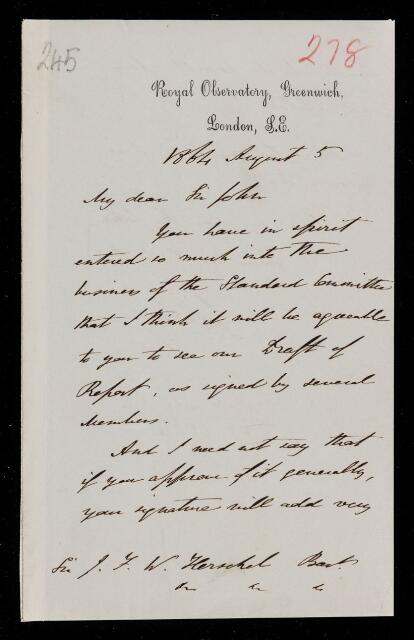 245
278
Royal Observatory, Greenwich,
London, S.E.
1864 August 5
My dear Sir John
You have in spirit
entered so much into the
business of the Standard Committee
that I think it will be agreeable
to you to see our Draft of
Report, as signed by several
Members.
And I need not say that
if you approve of it generally,
your signature will add very
Sir J. F. W. Herschel Bart.